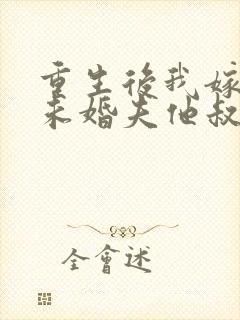 重生後我嫁
未婚夫他叔
全會述